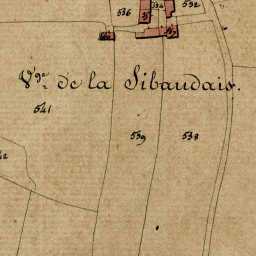 536
534
532
Vge. de la Sibaudais.
541
539
538